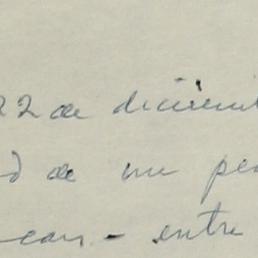 22 de diciemb
d de un pe
ean - entre